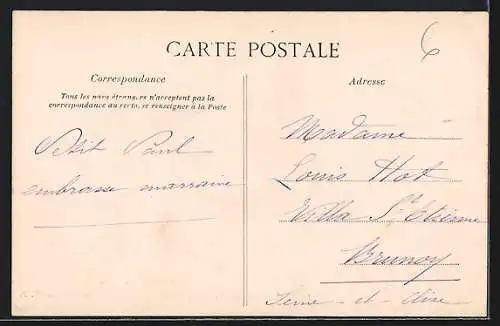 6
CARTE POSTALE
Correspondance
Tous les pays étrangers n'acceptent pas la
correspondance au recto, se renseigner à la Poste
Petit Paul
embrasse marraine
Adresse
Madame
Louis Hot
Villa St Etienne
Brunoy
Seine - et - Oise